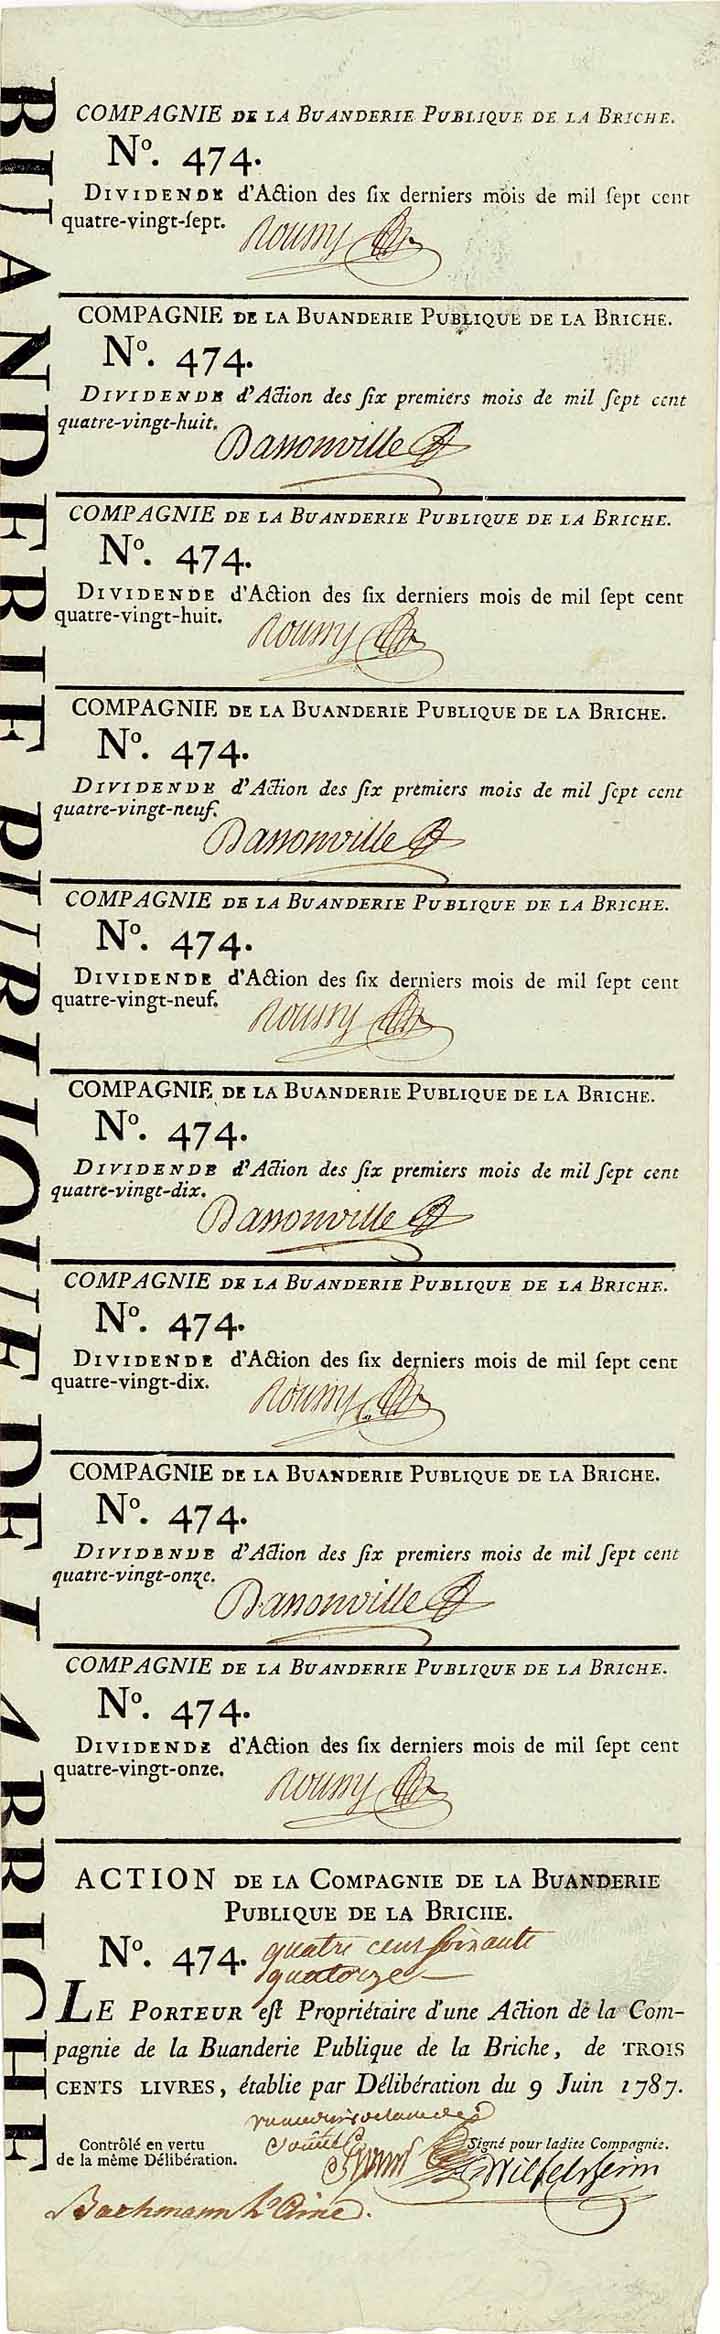 BUANDERIE PUBLIQUE DE LA BRICHE
COMPAGNIE DE LA BUANDERIE PUBLIQUE DE LA BRICHE.
Nº. 474.
DIVIDENDE d'Action des ſix derniers mois de mil ſept cent
quatre-vingt-ſept.
COMPAGNIE DE LA BUANDERIE PUBLIQUE DE LA BRICHE.
Nº. 474.
DIVIDENDE d'Action des ſix premiers mois de mil ſept cent
quatre-vingt-huit.
Dassonville
COMPAGNIE DE LA BUANDERIE PUBLIQUE DE LA BRICHE.
Nº. 474.
DIVIDENDE d'Action des ſix derniers mois de mil ſept cent
quatre-vingt-huit.
COMPAGNIE DE LA BUANDERIE PUBLIQUE DE LA BRICHE.
Nº. 474.
DIVIDENDE d'Action des ſix premiers mois de mil ſept cent
quatre-vingt-neuf.
Dassonville
COMPAGNIE DE LA BUANDERIE PUBLIQUE DE LA BRICHE.
Nº. 474.
DIVIDENDE d'Action des ſix derniers mois de mil ſept cent
quatre-vingt-neuf.
COMPAGNIE DE LA BUANDERIE PUBLIQUE DE LA BRICHE.
Nº. 474.
DIVIDENDE d'Action des ſix premiers mois de mil ſept cent
quatre-vingt-dix.
Dassonville
COMPAGNIE DE LA BUANDERIE PUBLIQUE DE LA BRICHE.
Nº. 474.
DIVIDENDE d'Action des ſix derniers mois de mil ſept cent
quatre-vingt-dix.
COMPAGNIE DE LA BUANDERIE PUBLIQUE DE LA BRICHE.
Nº. 474.
DIVIDENDE d'Action des ſix premiers mois de mil ſept cent
quatre-vingt-onze.
Dassonville
COMPAGNIE DE LA BUANDERIE PUBLIQUE DE LA BRICHE.
Nº. 474.
DIVIDENDE d'Action des ſix derniers mois de mil ſept cent
quatre-vingt-onze.
ACTION DE LA COMPAGNIE DE LA BUANDERIE
PUBLIQUE DE LA BRICHE.
Nº. 474. quatre cent soixante
quatorze
LE PORTEUR eſt Propriétaire d'une Action de la Com-
pagnie de la Buanderie Publique de la Briche, de TROIS
CENTS LIVRES, établie par Délibération du 9 Juin 1787.
Contrôlé en vertu
de la même Délibération.
Signé pour ladite Compagnie.
Bachmann